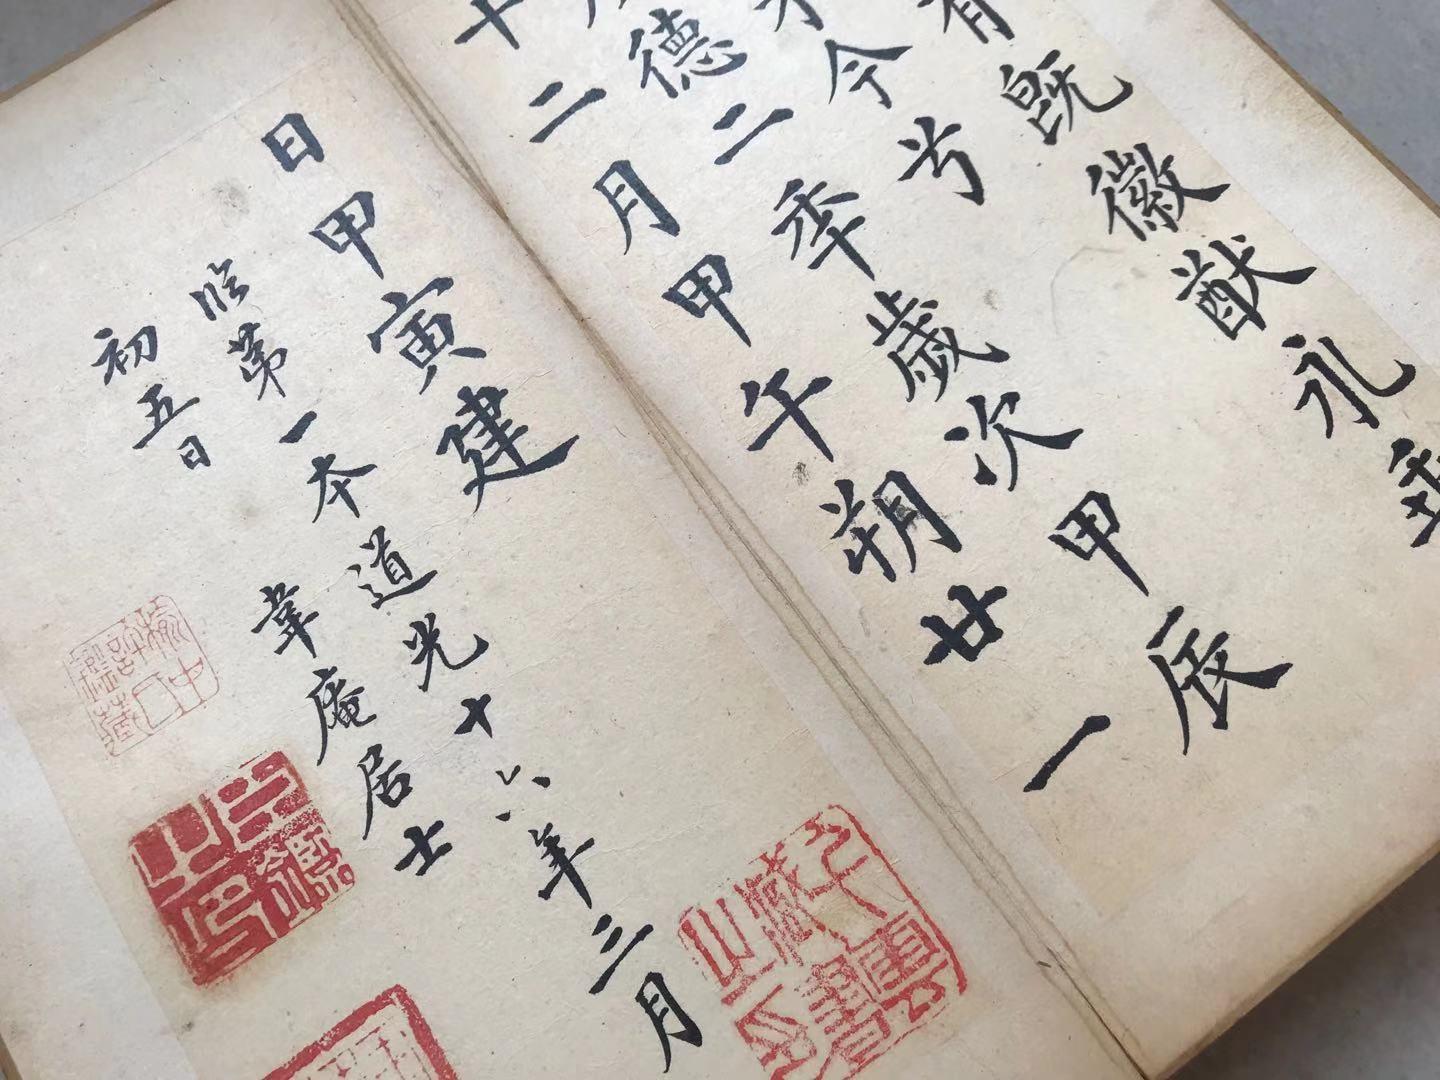 有既徽猷永垂
今兮
德二季歲次甲辰
十二月甲午朔廿一
日甲寅建
臨第一本道光十六年三月
初五日 韋庵居士